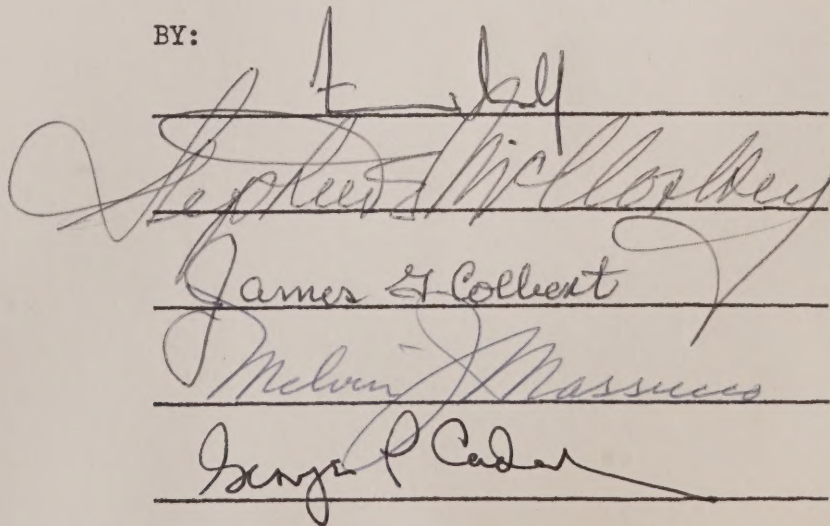 BY:
Stephen McCloskey
James G Colbert
Melvin J Massucco
George P